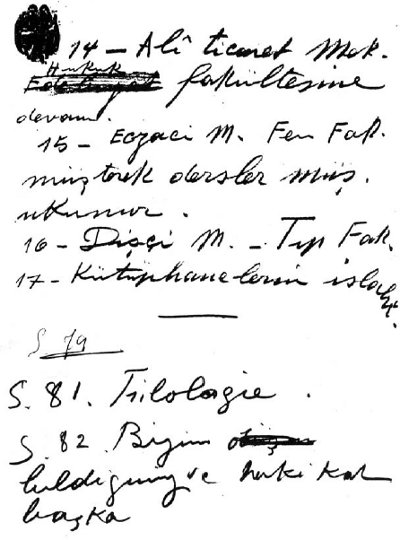 14 - Alî ticaret Mek.
Hukuk
fakültesine
devamı.
15 - Eczacı M. Fen Fak.
müşterek dersler müş.
okunur.
16 - Dişçi M. - Tıp Fak.
17 - Kütüphanelerin islahı.
S. 79
S. 81. Filologie.
S. 82. Bizim
bildiğimiz ve hakikat
başka